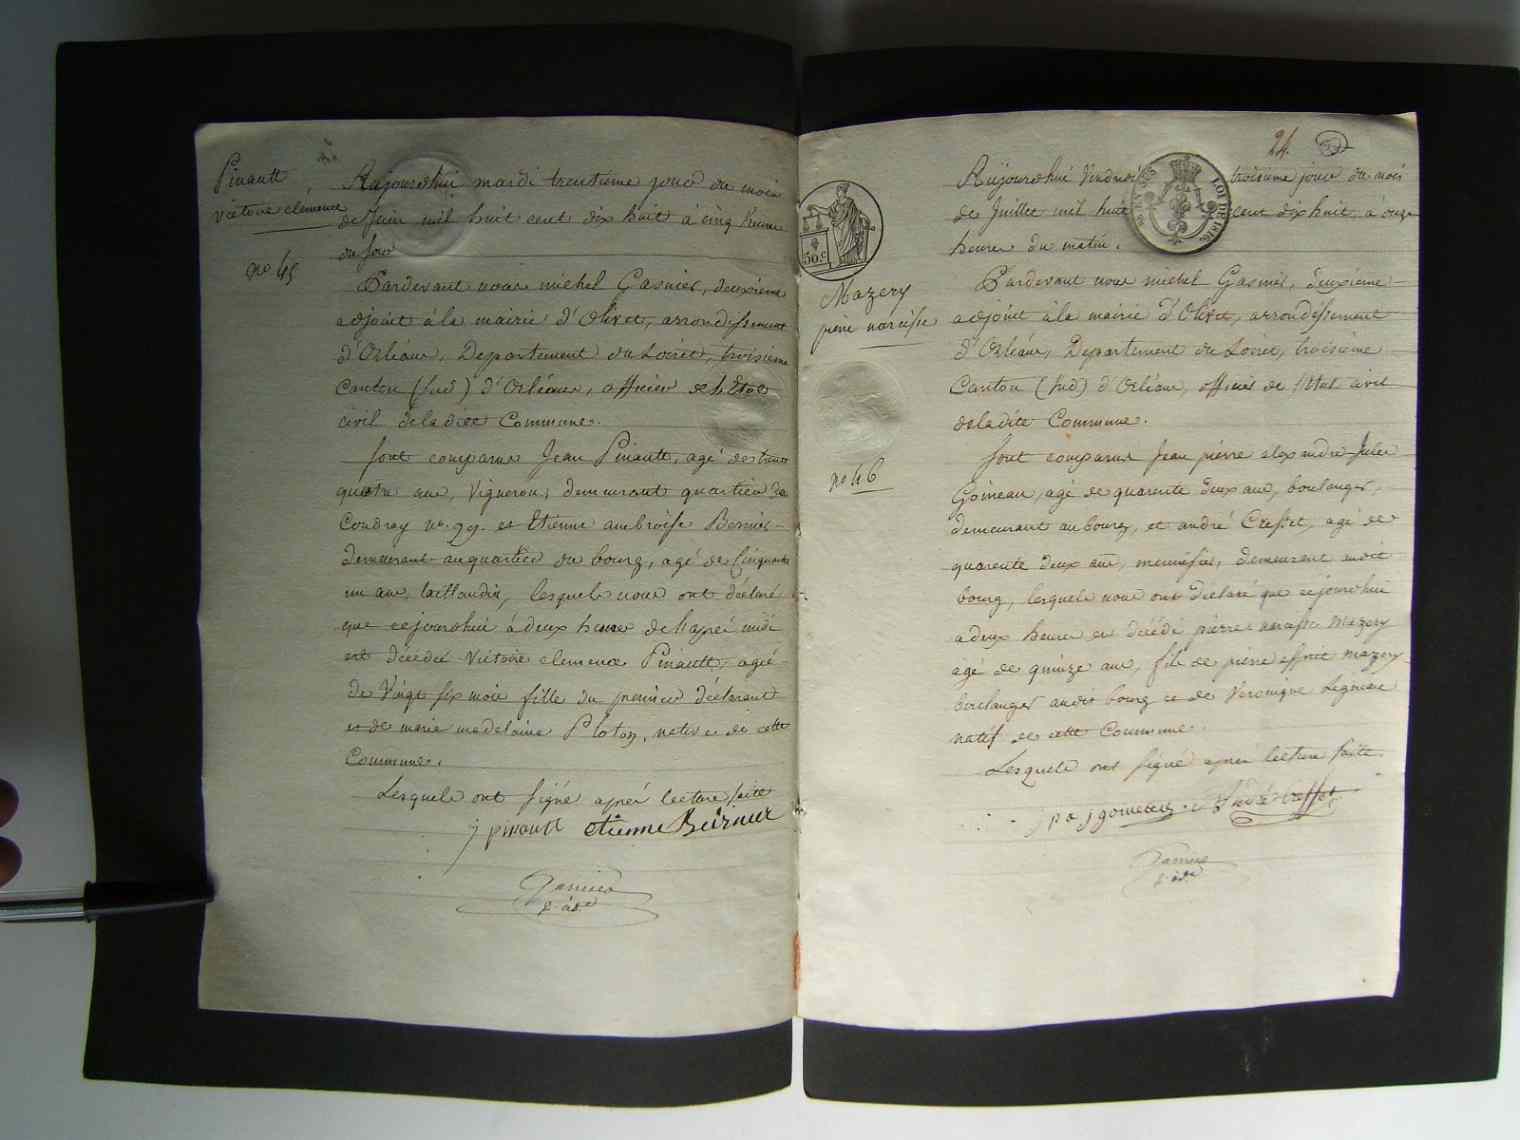 Pinault
victoire clemence
no 45
Aujourdhui mardi trentieme jour du mois
de Juin mil huit cent dix huit à cinq heure
du soir
Pardevant nous michel Gasnier, deuxieme
adjoint à la mairie d'Olivet, arrondissement
d'Orléans, Departement du Loiret, troisieme
Canton (Sud) d'Orléans, officier de l'Etat
civil de la dite Commune.
Sont comparus Jean Pinault, agé de trente
quatre ans, Vigneron, demeurant quartier du
Coudray no. 29. et Etienne ambroise Bernier
demeurant au quartier du bourg, agé de Cinquante
un ans, taillandier, lesquels nous ont déclaré
que cejourdhui à deux heure de l'aprés midi
est décédée Victoire clemence Pinault, agée
de Vingt six mois fille du premier déclarant
et de marie madelaine Ploton, native de cette
Commune.
Lesquels ont signé aprés lecture faite
j pinault etienne Beirnier
Gasnier
2e adt
24.
50c
LOI DE 1816
Mazery
pierre narcisse
no 46
Aujourdhui Vendredi troisieme jour du mois
de Juillet mil huit cent dix huit, à onze
heures du matin.
Pardevant nous michel Gasnier, deuxieme
adjoint à la mairie d'Olivet, arrondissement
d'Orléans, Departement du Loiret, troisieme
Canton (Sud) d'Orléans, officier de l'Etat civil
de la dite Commune.
Sont comparus Jean pierre alexandre Jules
Goineau, agé de quarente deux ans, boulanger,
demeurant au bourg, et andré Cresset, agé de
quarente deux ans, menuisier, demeurant audit
bourg, lesquels nous ont déclaré que cejourdhui
a deux heures est décédé pierre narcisse Mazery
agé de quinze ans, fils de pierre Mazery
boulanger audit bourg et de Veronique
natif de cette Commune.
Lesquels ont signé aprés lecture faite
Gasnier
2e adt